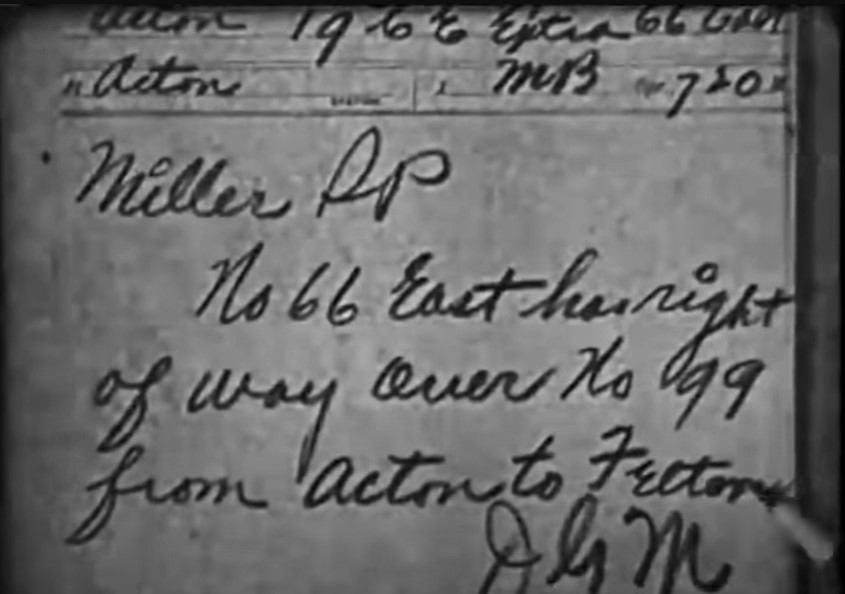 Acton 19 C & E Extra 66 East
" Acton MB 720
Miller OP
No 66 East has right
of way over No 99
from Acton to Felton
J G M